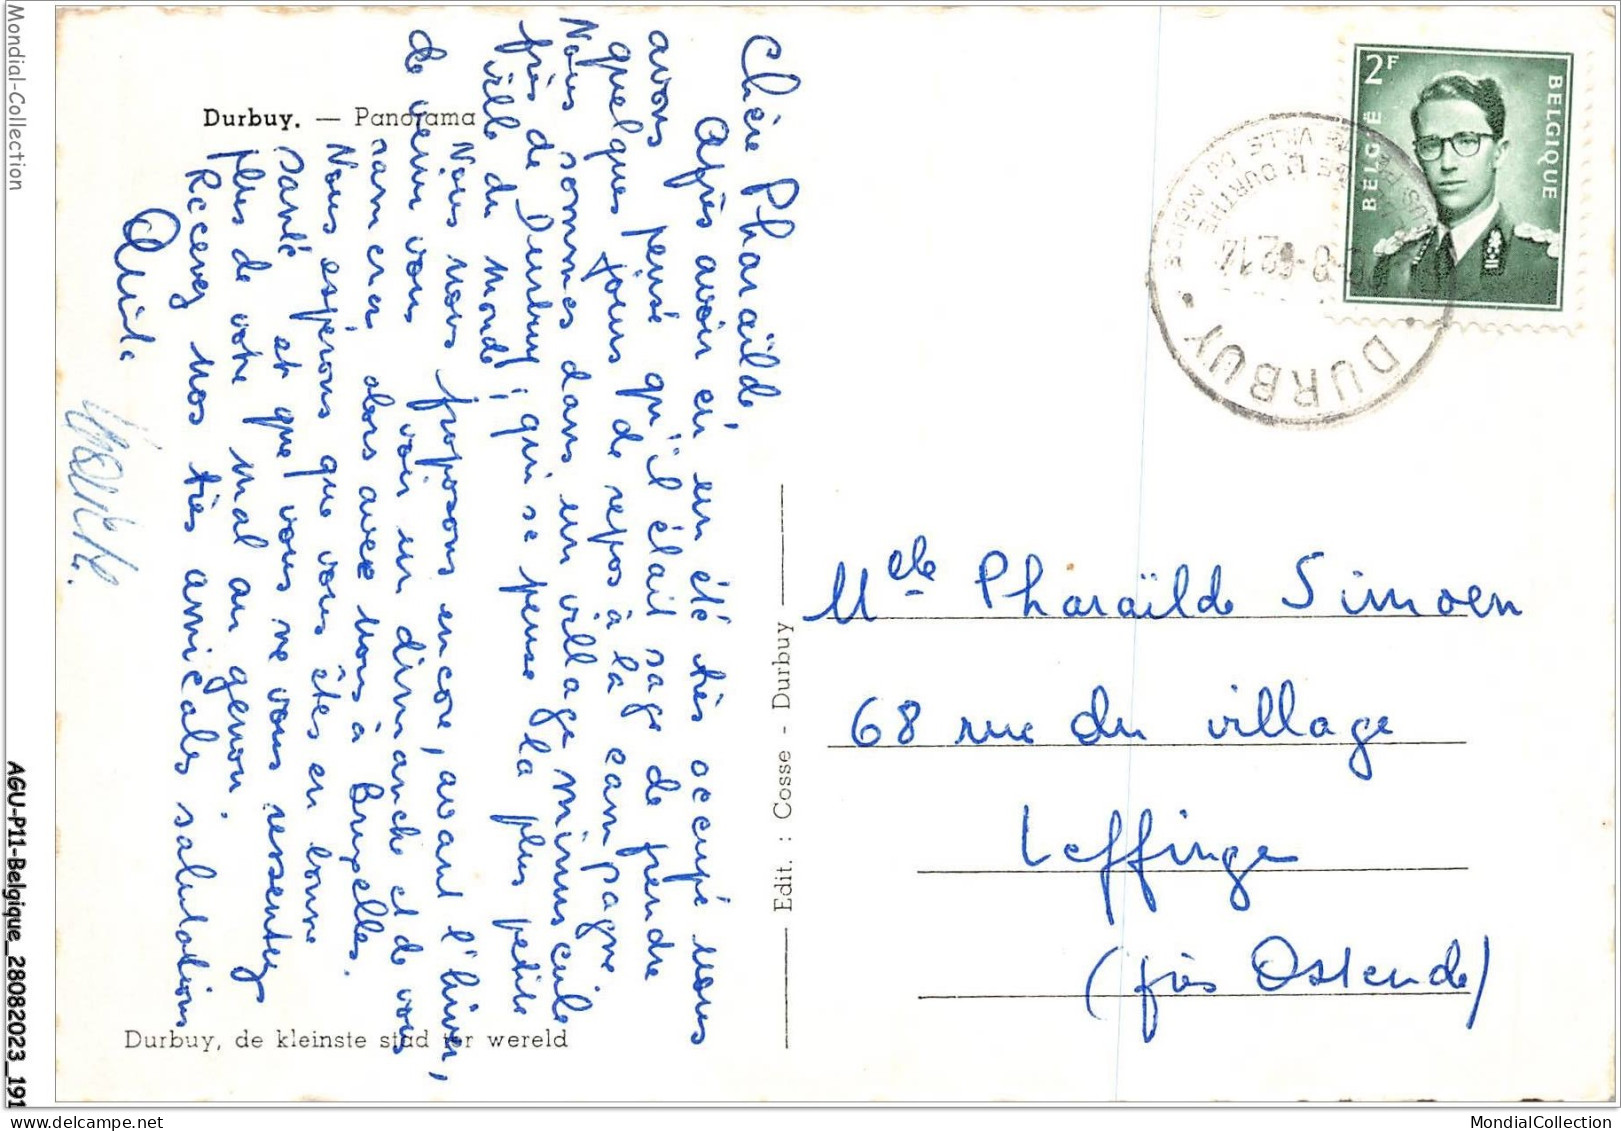 Mondial-Collection
Durbuy. — Panorama
Chère Pharaïlde,
Après avoir eu un été très occupé nous
avons pensé qu'il était sage de prendre
quelques jours de repos à la campagne.
Nous sommes dans un village minuscule
près de Durbuy, qui se pense "la plus petite
ville du monde",
Nous nous proposons encore, avant l'hiver,
de venir vous voir un dimanche et de vous
ramener alors avec nous à Bruxelles.
Nous espérons que vous êtes en bonne
santé et que vous ne vous ressentez
plus de votre mal au genou.
Recevez nos très amicales salutations
Durbuy, de kleinste stad ter wereld
Edit. : Cosse - Durbuy
2F
BELGIË
BELGIQUE
DURBUY
Mlle Pharaïlde Simoen
68 rue du village
Leffinge
(près Ostende)
AGU-P11-Belgique_28082023_191
MondialCollection